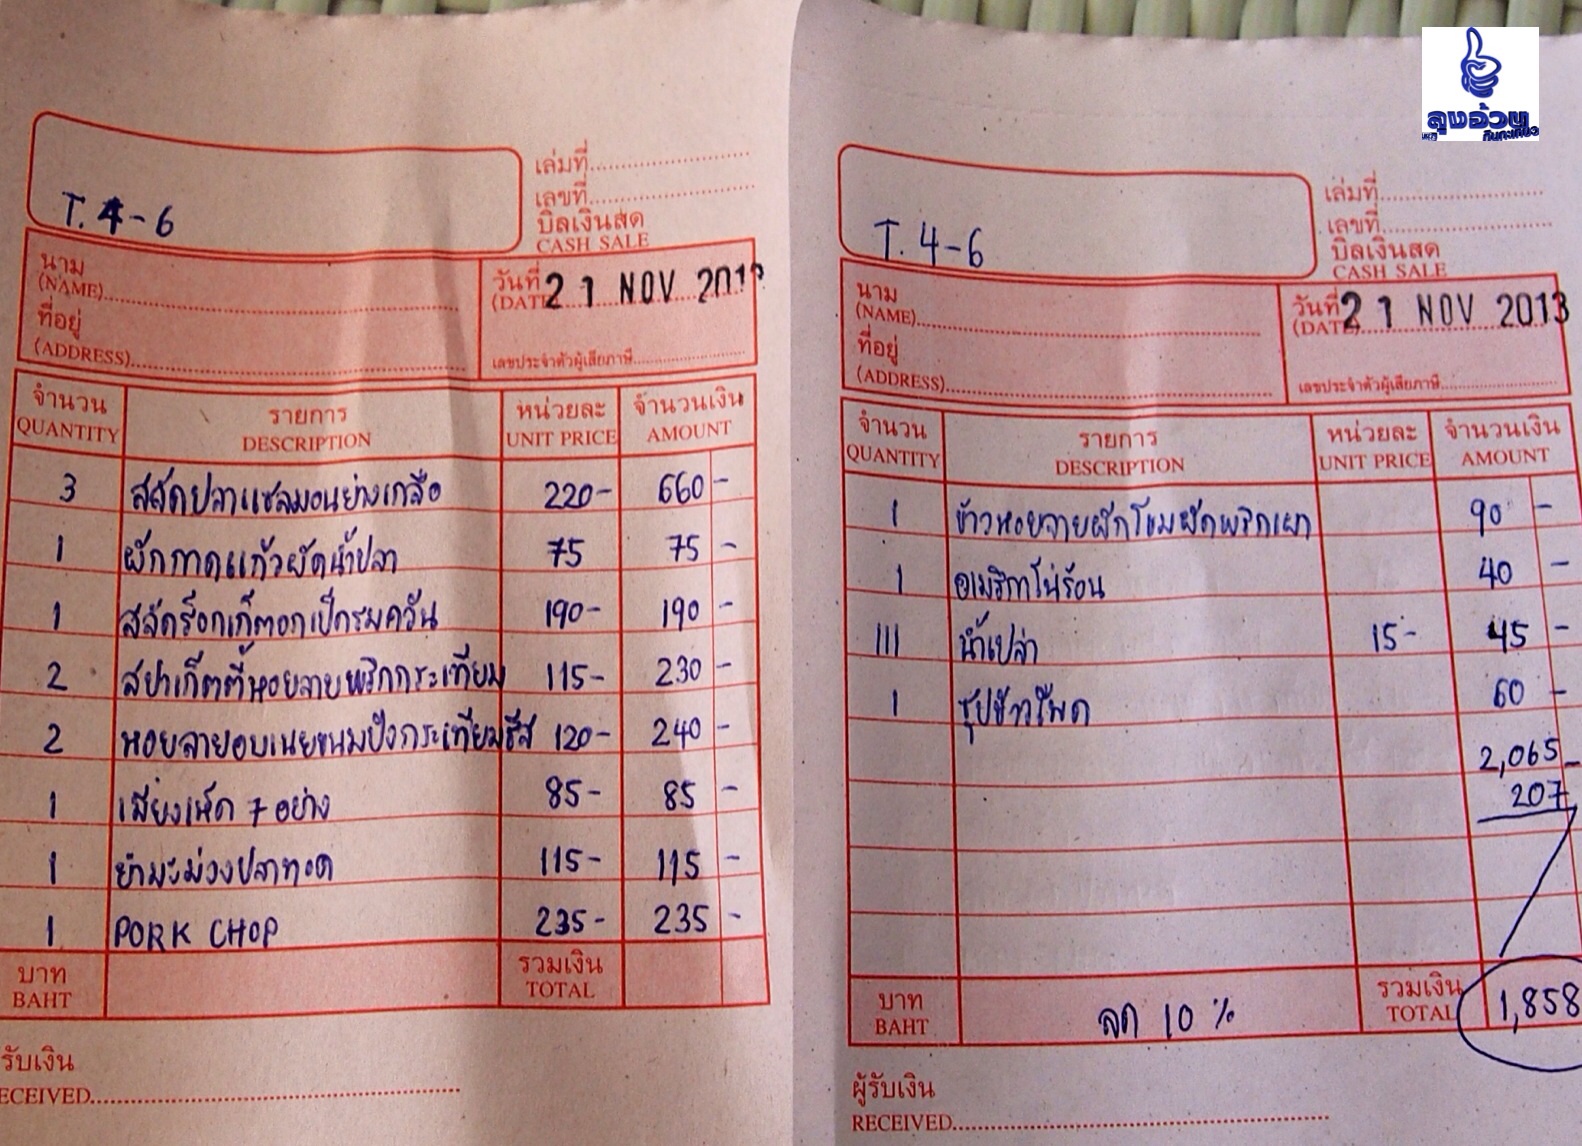 T. 4-6
เล่มที่
เลขที่
บิลเงินสด
CASH SALE
นาม
(NAME)
ที่อยู่
(ADDRESS)
วันที่ 21 NOV 201
(DATE)
เลขประจำตัวผู้เสียภาษี
จำนวน รายการ หน่วยละ จำนวนเงิน
QUANTITY DESCRIPTION UNIT PRICE AMOUNT
3 สลัดปลาแซลมอนย่างเกลือ 220- 660-
1 ผักกาดแก้วผัดน้ำปลา 75 75 -
1 สลัดร็อกเก็ตอกเป็ดรมควัน 190- 190 -
2 สปาเก็ตตี้หอยลายพริกกระเทียม 115- 230 -
2 หอยลายอบเนยขนมปังกระเทียมชีส 120- 240 -
1 เสียงเห็ด 7 อย่าง 85- 85 -
1 ยำมะม่วงปลาทอด 115- 115 -
1 PORK CHOP 235- 235 -
บาท รวมเงิน
BAHT TOTAL
รับเงิน
ECEIVED
ลุงอ้วน
กินกะเที่ยว
T. 4-6
เล่มที่
เลขที่
บิลเงินสด
CASH SALE
นาม
(NAME)
ที่อยู่
(ADDRESS)
วันที่ 21 NOV 2013
(DATE)
เลขประจำตัวผู้เสียภาษี
จำนวน รายการ หน่วยละ จำนวนเงิน
QUANTITY DESCRIPTION UNIT PRICE AMOUNT
1 ข้าวหอยลายผักโขมผัดพริกเผา 90 -
1 อเมริกาโน่ร้อน 40 -
III น้ำเปล่า 15- 45 -
1 ซุปข้าวโพด 60 -
2,065-
207
บาท ลด 10 % รวมเงิน 1,858
BAHT TOTAL
ผู้รับเงิน
RECEIVED